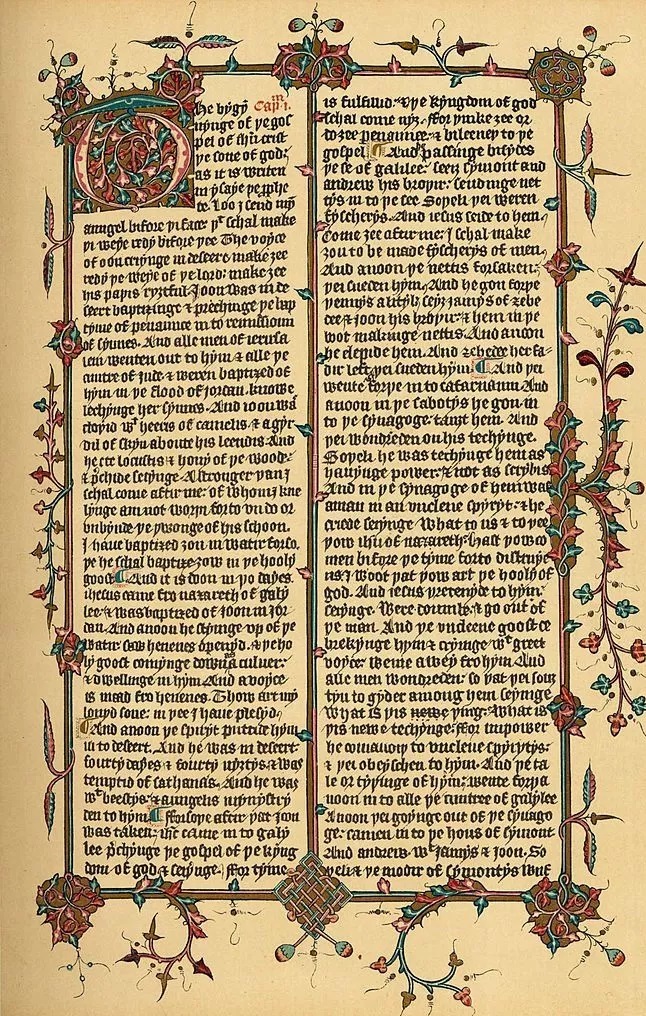 The bygy Capm. i.
nynge of ye gos
pel of ihū crist
ye sone of god:
as it is writen
in ysaye ye pphe
te. Loo I send my
aungel bifore yi face: yt schal make
yi weye redy bifore yee. The voyce
of oon cryinge in desert: make zee
redy ye weye of ye lord: make zee
his papis ryztful. Joon was in de
sert baptizinge & prechinge ye bap
tyme of penaunce in to remissioun
of synnes. And alle men of ierusa
lem wenten out to hym & alle ye
cuntre of Jude. & weren baptized of
hym in ye flood of jordan. knowe
lechynge her synnes. And ioon was
cloyid wt heeris of camelis & a gyr
dil of skyn aboute his leendis. And
he eet locustis & hony of ye wode.
& pchide seiynge. A stronger yan I
schal come aftir me: of whom I kne
lynge am not worþi forto vndo or
vnbynde ye ywonge of his schoon.
I haue baptized zou in watir forso
ye he schal baptize zow in ye hooly
goost. And it is doon in yo dayes.
ihesus came fro nazareth of galy
lee. & was baptized of joon in jor
dan. And anoon he stynge vp of ye
watir saw heuenes openyd. & ye ho
ly goost comynge doun as a culuer.
& dwellinge in hym. And a voyce
is maad fro heuenes. Thow art my
louyd sone: in yee I haue plesyd.
And anoon ye spiryt puttide hym
in to desert. And he was in desert
fourty dayes & fourty nyztys. & was
temptid of sathanas. And he was
wt beestys. & aungelis mynystry
den to hym. Forsoye aftir yat joon
was taken. ihc came in to galy
lee pchynge ye gospel of ye kyng
dom of god & seiynge. Ffor tyme
is fulfillid. & ye kyngdom of god
schal come nyz. ffor yinke zee or
do zee penaunce. & bileeuey to ye
gospel. And passinge bisydes
ye se of galilee. seez symont and
andrew his broyir. sendinge net
tys in to ye see. Soyeli yei weren
fyscherys. And iesus seide to hem.
Come zee aftir me. I schal make
zou to be made fyscherys of men.
And anoon ye nettis forsaken.
yei sueden hym. And he gon forye
yennys a lityl. seez jamys of zebe
dee & joon his broyir. & hem in ye
boot makinge nettis. And anoon
he clepide hem. And zebedee her fa
dir left. yei sueden hym. And yei
wente forye in to cafarnaum. And
anoon in ye sabotys he gon in
to ye synagoge. tauzt hem. And
yei wondreden on his techynge.
Soyeli he was techynge hem as
hauynge power. & not as scrybis.
And in ye synagoge of hem was
a man in an vnclene spyryt. & he
criede seiynge. What to us & to yee
yow ihū of nazareth. hast yow co
men bifore ye tyme forto distruye
us. I woot yat yow art ye hooly of
god. And iesus yretenyde to hym.
seiynge. Were doumb. & go out of
ye man. And ye vnclene goost to
brekynge hym & cryinge wt greet
voyce. wente awey fro hym. And
alle men wondreden. so yat yei souz
ten to gyder among hem seiynge
What is yis newe ying. What is
yis newe techynge. ffor in power
he comaundiy to vnclene spyrytys.
& yei obeyschen to hym. And ye ta
le or tyyinge of hym. wente forya
noon in to alle ye cuntree of galylee
Anoon yei goynge oute of ye synago
ge. camen in to ye hous of symont
And andrew. wt jamys & joon. So
yeli & ye modir of symontys wijf